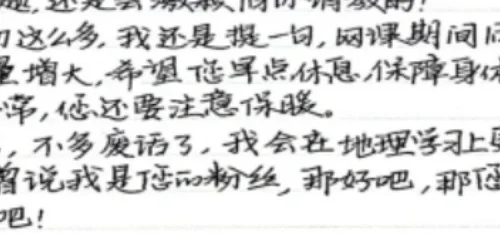 还是会激教你们请教的！
这么多，我还是提一句，网课期间
量增大，希望您早点休息，保障身体
常，您还要注意保暖。
，不多废话了，我会在地理学习上
曾说我是您的粉丝，那好吧，那您
吧！